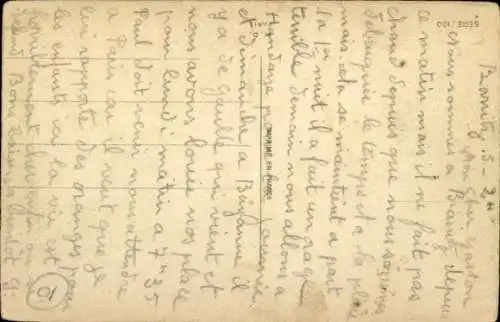 Biarritz 5-
Mon cher Gaston
nous sommes à Biarritz depuis
ce matin mais il ne fait pas
chaud depuis que nous sommes
le temps est à la pluie
mais ça se maintient à part
la 1re nuit il a fait un orage
terrible demain nous allons a
Hendaye pour la journée
et dimanche a Bayonne il
y a de Gaulle qui vient et
nous avons loué nos place
pour lundi matin a 7h35
Paul doit venir nous attendre
a Paris car il veut que je
lui rapporte des oranges pour
les enfants ici la vie est
Bons baisers
a bientôt G.
IMPRIMÉ EN FRANCE